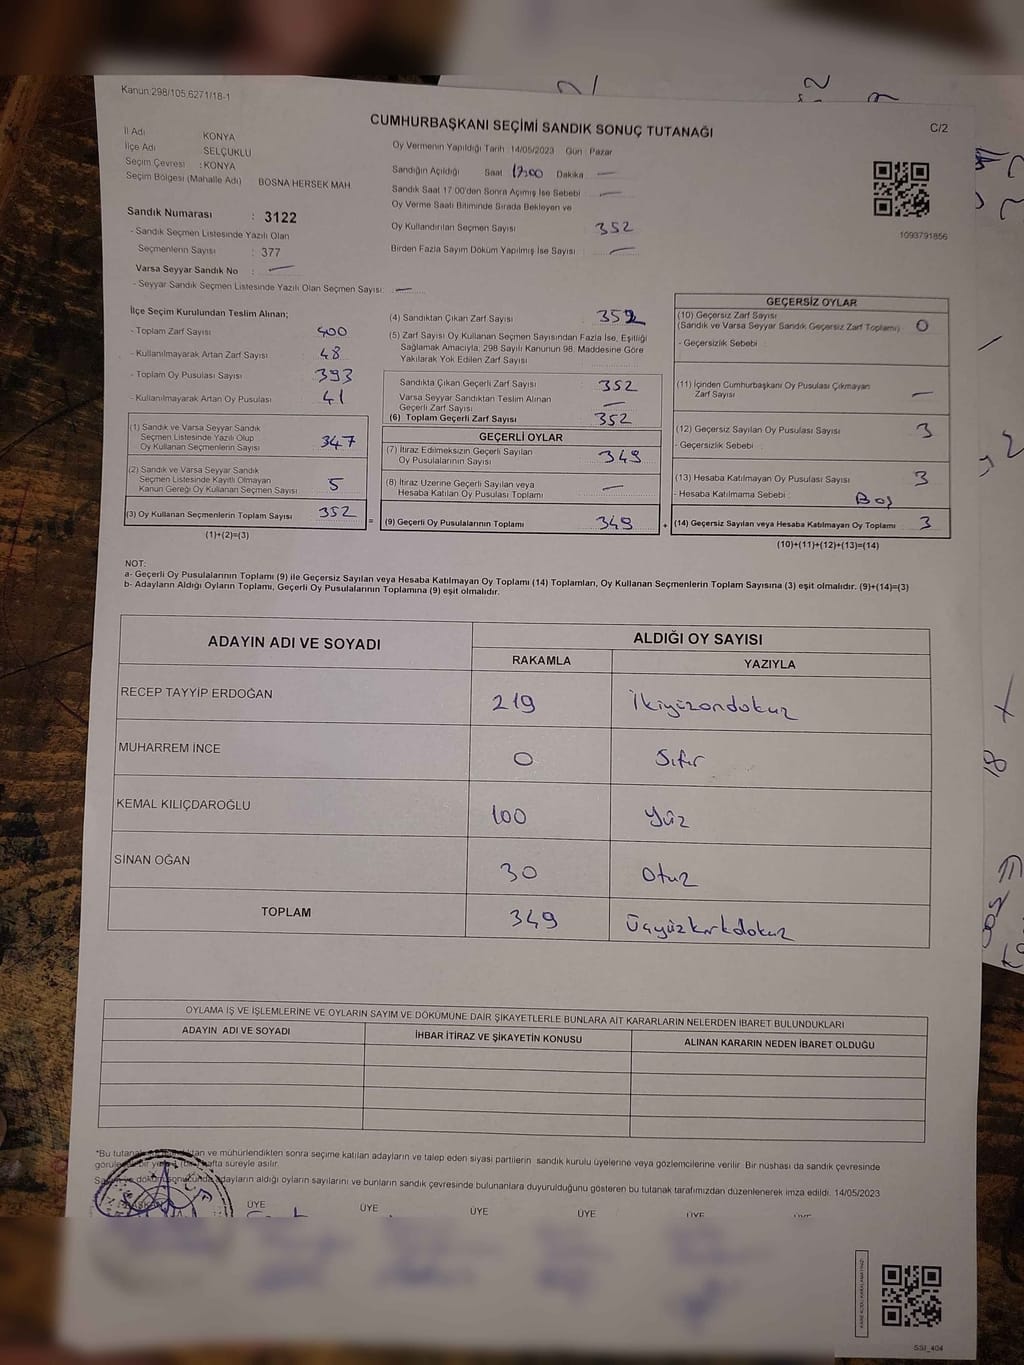 Kanun 298/105,6271/18-1
CUMHURBAŞKANI SEÇİMİ SANDIK SONUÇ TUTANAĞI
C/2
İl Adı KONYA
İlçe Adı SELÇUKLU
Seçim Çevresi : KONYA
Seçim Bölgesi (Mahalle Adı) BOSNA HERSEK MAH
Sandık Numarası : 3122
- Sandık Seçmen Listesinde Yazılı Olan
Seçmenlerin Sayısı : 377
Varsa Seyyar Sandık No : —
- Seyyar Sandık Seçmen Listesinde Yazılı Olan Seçmen Sayısı: —
Oy Vermenin Yapıldığı Tarih : 14/05/2023 Gün : Pazar
Sandığın Açıldığı Saat 17:00 Dakika —
Sandık Saat 17:00'den Sonra Açılmış İse Sebebi —
Oy Verme Saati Bitiminde Sırada Bekleyen ve
Oy Kullandırılan Seçmen Sayısı 352
Birden Fazla Sayım Döküm Yapılmış İse Sayısı —
1093791856
İlçe Seçim Kurulundan Teslim Alınan;
- Toplam Zarf Sayısı 400
- Kullanılmayarak Artan Zarf Sayısı 48
- Toplam Oy Pusulası Sayısı 393
- Kullanılmayarak Artan Oy Pusulası 41
(1) Sandık ve Varsa Seyyar Sandık
Seçmen Listesinde Yazılı Olup
Oy Kullanan Seçmenlerin Sayısı 347
(2) Sandık ve Varsa Seyyar Sandık
Seçmen Listesinde Kayıtlı Olmayan
Kanun Gereği Oy Kullanan Seçmen Sayısı 5
(3) Oy Kullanan Seçmenlerin Toplam Sayısı 352
(1)+(2)=(3)
(4) Sandıktan Çıkan Zarf Sayısı 352
(5) Zarf Sayısı Oy Kullanan Seçmen Sayısından Fazla İse, Eşitliği
Sağlamak Amacıyla, 298 Sayılı Kanunun 98. Maddesine Göre
Yakılarak Yok Edilen Zarf Sayısı
Sandıkta Çıkan Geçerli Zarf Sayısı 352
Varsa Seyyar Sandıktan Teslim Alınan
Geçerli Zarf Sayısı —
(6) Toplam Geçerli Zarf Sayısı 352
GEÇERLİ OYLAR
(7) İtiraz Edilmeksizin Geçerli Sayılan
Oy Pusulalarının Sayısı 349
(8) İtiraz Üzerine Geçerli Sayılan veya
Hesaba Katılan Oy Pusulası Toplamı —
= (9) Geçerli Oy Pusulalarının Toplamı 349
GEÇERSİZ OYLAR
(10) Geçersiz Zarf Sayısı
(Sandık ve Varsa Seyyar Sandık Geçersiz Zarf Toplamı) 0
- Geçersizlik Sebebi :
(11) İçinden Cumhurbaşkanı Oy Pusulası Çıkmayan
Zarf Sayısı —
(12) Geçersiz Sayılan Oy Pusulası Sayısı 3
- Geçersizlik Sebebi :
(13) Hesaba Katılmayan Oy Pusulası Sayısı 3
- Hesaba Katılmama Sebebi : Boş
+ (14) Geçersiz Sayılan veya Hesaba Katılmayan Oy Toplamı 3
(10)+(11)+(12)+(13)=(14)
NOT:
a- Geçerli Oy Pusulalarının Toplamı (9) ile Geçersiz Sayılan veya Hesaba Katılmayan Oy Toplamı (14) Toplamları, Oy Kullanan Seçmenlerin Toplam Sayısına (3) eşit olmalıdır. (9)+(14)=(3)
b- Adayların Aldığı Oyların Toplamı, Geçerli Oy Pusulalarının Toplamına (9) eşit olmalıdır.
ADAYIN ADI VE SOYADI ALDIĞI OY SAYISI
RAKAMLA YAZIYLA
RECEP TAYYİP ERDOĞAN 219 İkiyüzondokuz
MUHARREM İNCE 0 Sıfır
KEMAL KILIÇDAROĞLU 100 Yüz
SİNAN OĞAN 30 Otuz
TOPLAM 349 Üçyüzkırkdokuz
OYLAMA İŞ VE İŞLEMLERİNE VE OYLARIN SAYIM VE DÖKÜMÜNE DAİR ŞİKAYETLERLE BUNLARA AİT KARARLARIN NELERDEN İBARET BULUNDUKLARI
ADAYIN ADI VE SOYADI İHBAR İTİRAZ VE ŞİKAYETİN KONUSU ALINAN KARARIN NEDEN İBARET OLDUĞU
*Bu tutanak ve mühürlendikten sonra seçime katılan adayların ve talep eden siyasi partilerin sandık kurulu üyelerine veya gözlemcilerine verilir. Bir nüshası da sandık çevresinde
hafta süreyle asılır.
adayların aldığı oyların sayılarını ve bunların sandık çevresinde bulunanlara duyurulduğunu gösteren bu tutanak tarafımızdan düzenlenerek imza edildi. 14/05/2023
ÜYE ÜYE ÜYE ÜYE ÜYE
SSI_404